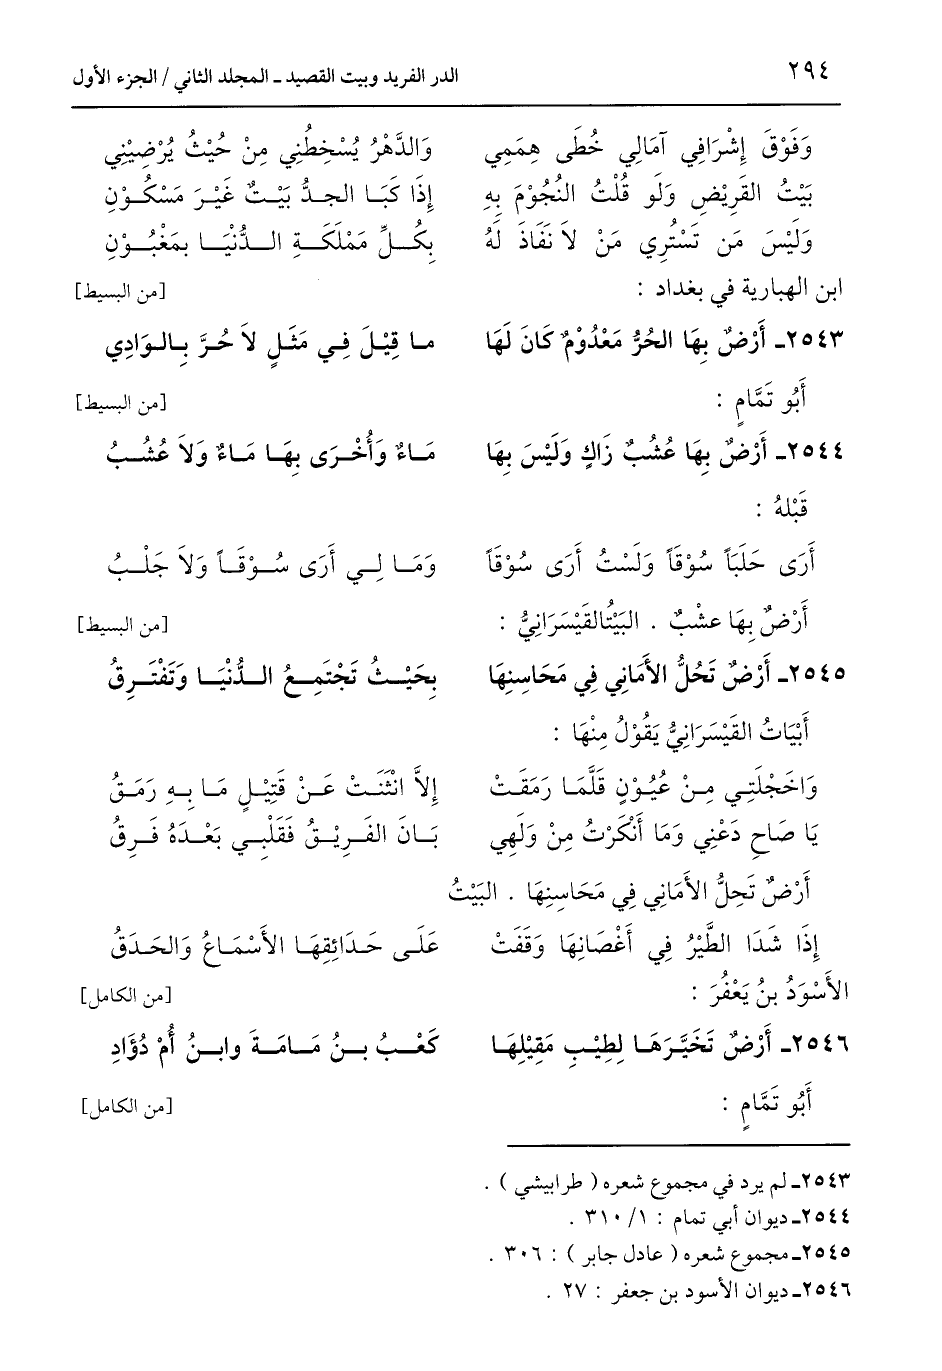 ٢٩٤ الدر الفريد وبيت القصيد ـ المجلد الثاني / الجزء الأول
وَفَوْقَ إِشْرَافِي آمَالِي خُطَى هِمَمِي وَالدَّهْرُ يُسْخِطُنِي مِنْ حَيْثُ يُرْضِيْنِي
بَيْتُ القَرِيْضِ وَلَو قُلْتُ النُّجُوْمَ بِهِ إِذَا كَبَا الجدُّ بَيْتٌ غَيْرَ مَسْكُوْنِ
وَلَيْسَ مَن تَسْتُرِي مَنْ لاَ نَفَاذَ لَهُ بِكُلِّ مَمْلَكَةِ الدُّنْيَا بِمَغْبُوْنِ
ابن الهبارية في بغداد : [من البسيط]
٢٥٤٣ـ أَرْضٌ بِهَا الحُرُّ مَعْدُوْمٌ كَانَ لَهَا ما قِيْلَ فِي مَثَلٍ لاَ حُرَّ بِالوَادِي
أَبُو تَمَّامٍ : [من البسيط]
٢٥٤٤ـ أَرْضٌ بِهَا عُشُبٌ زَاكٍ وَلَيْسَ بِهَا مَاءٌ وَأُخْرَى بِهَا مَاءٌ وَلاَ عُشُبُ
قَبْلهُ :
أَرَى حَلَبَاً سُوْقَاً وَلَسْتُ أَرَى سُوْقَاً وَمَا لِي أَرَى سُوْقَاً وَلاَ جَلْبُ
أَرْضٌ بِهَا عشْبٌ . البَيْتُالقَيْسَرَانِيُّ : [من البسيط]
٢٥٤٥ـ أَرْضٌ تَحُلُّ الأَمَانِي فِي مَحَاسِنِهَا بِحَيْثُ تَجْتَمِعُ الدُّنْيَا وَتَفْتَرِقُ
أَبْيَاتُ القَيْسَرَانِيُّ يَقُوْلُ مِنْهَا :
وَاخَجْلَتِي مِنْ عُيُوْنٍ قَلَّمَا رَمَقَتْ إِلاَّ انْثَنَتْ عَنْ قَتِيْلٍ مَا بِهِ رَمَقُ
يَا صَاحِ دَعْنِي وَمَا أَنْكَرْتُ مِنْ وَلَهِي بَانَ الفَرِيْقُ فَقَلْبِي بَعْدَهُ فَرِقُ
أَرْضٌ تَحِلُّ الأَمَانِي فِي مَحَاسِنِهَا . البَيْتُ
إِذَا شَدَا الطَّيْرُ فِي أَغْصَانِهَا وَقَفَتْ عَلَى حَدَائِقِهَا الأَسْمَاعُ وَالحَدَقُ
الأَسْوَدُ بنُ يَعْفُرَ : [من الكامل]
٢٥٤٦ـ أَرْضٌ تَخَيَّرَهَا لِطِيْبِ مَقِيْلِهَا كَعْبُ بنُ مَامَةَ وابنُ أُمِّ دُؤَادِ
أَبُو تَمَّامٍ : [من الكامل]
٢٥٤٣ـ لم يرد في مجموع شعره ( طرابيشي ) .
٢٥٤٤ـ ديوان أبي تمام : ١/ ٣١٠ .
٢٥٤٥ـ مجموع شعره ( عادل جابر ) : ٣٠٦ .
٢٥٤٦ـ ديوان الأسود بن جعفر : ٢٧ .